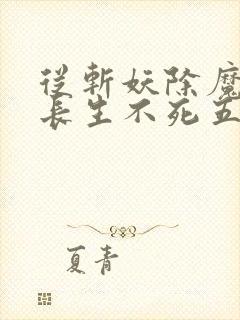 從斬妖除魔
長生不死五
夏青